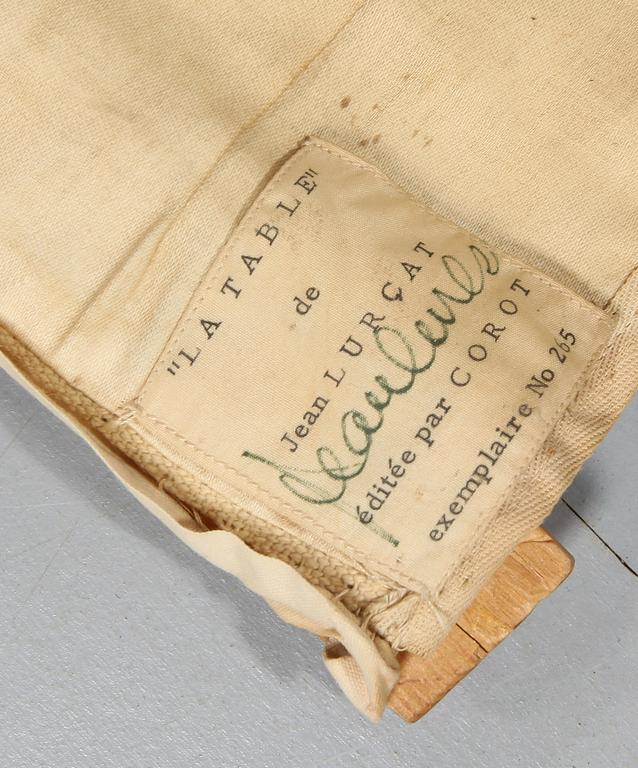 "LA TABLE"
de
Jean LURÇAT
éditée par COROT
exemplaire No 265